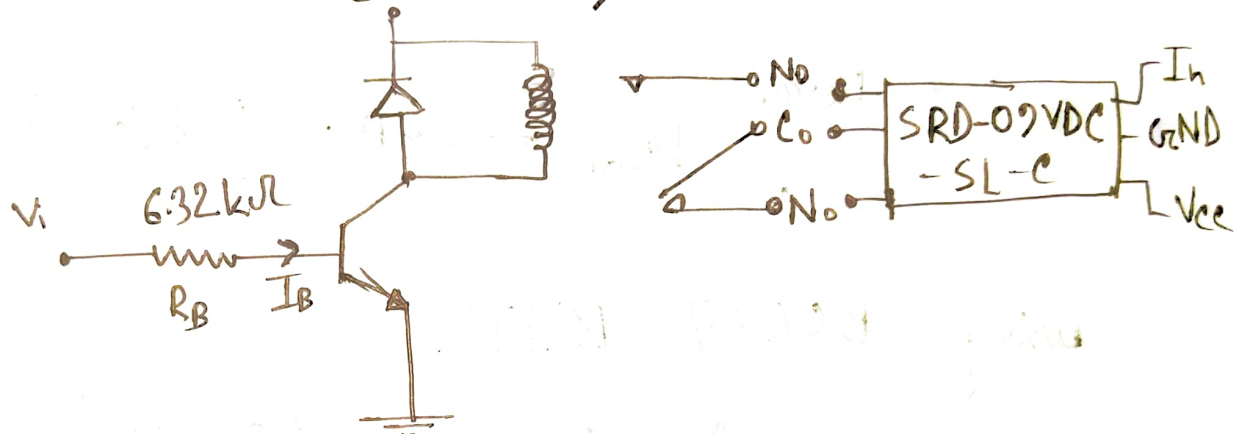 Vi
6.32kΩ
RB
IB
No
Co
No
SRD-09VDC
-SL-C
In
GND
Vcc